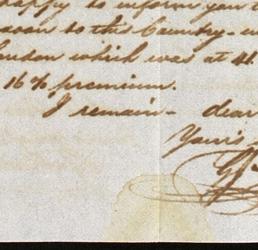 happy to inform you t
to this Country - w
London which was at 41
16% premium.
I remain - dear
Yours